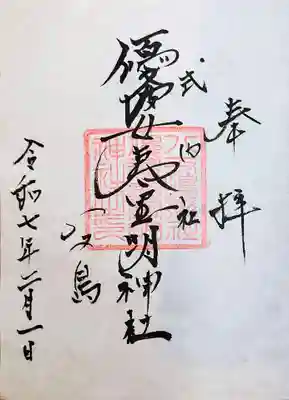 奉拝
式内社
優婆夷宝明神社
八丈島
令和七年二月一日